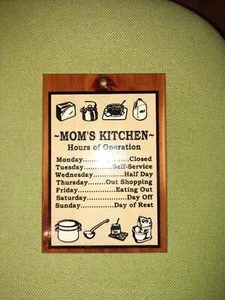 ~MOM'S KITCHEN~
Hours of Operation
Monday....................Closed
Tuesday............Self-Service
Wednesday..............Half Day
Thursday........Out Shopping
Friday................Eating Out
Saturday.................Day Off
Sunday............Day of Rest